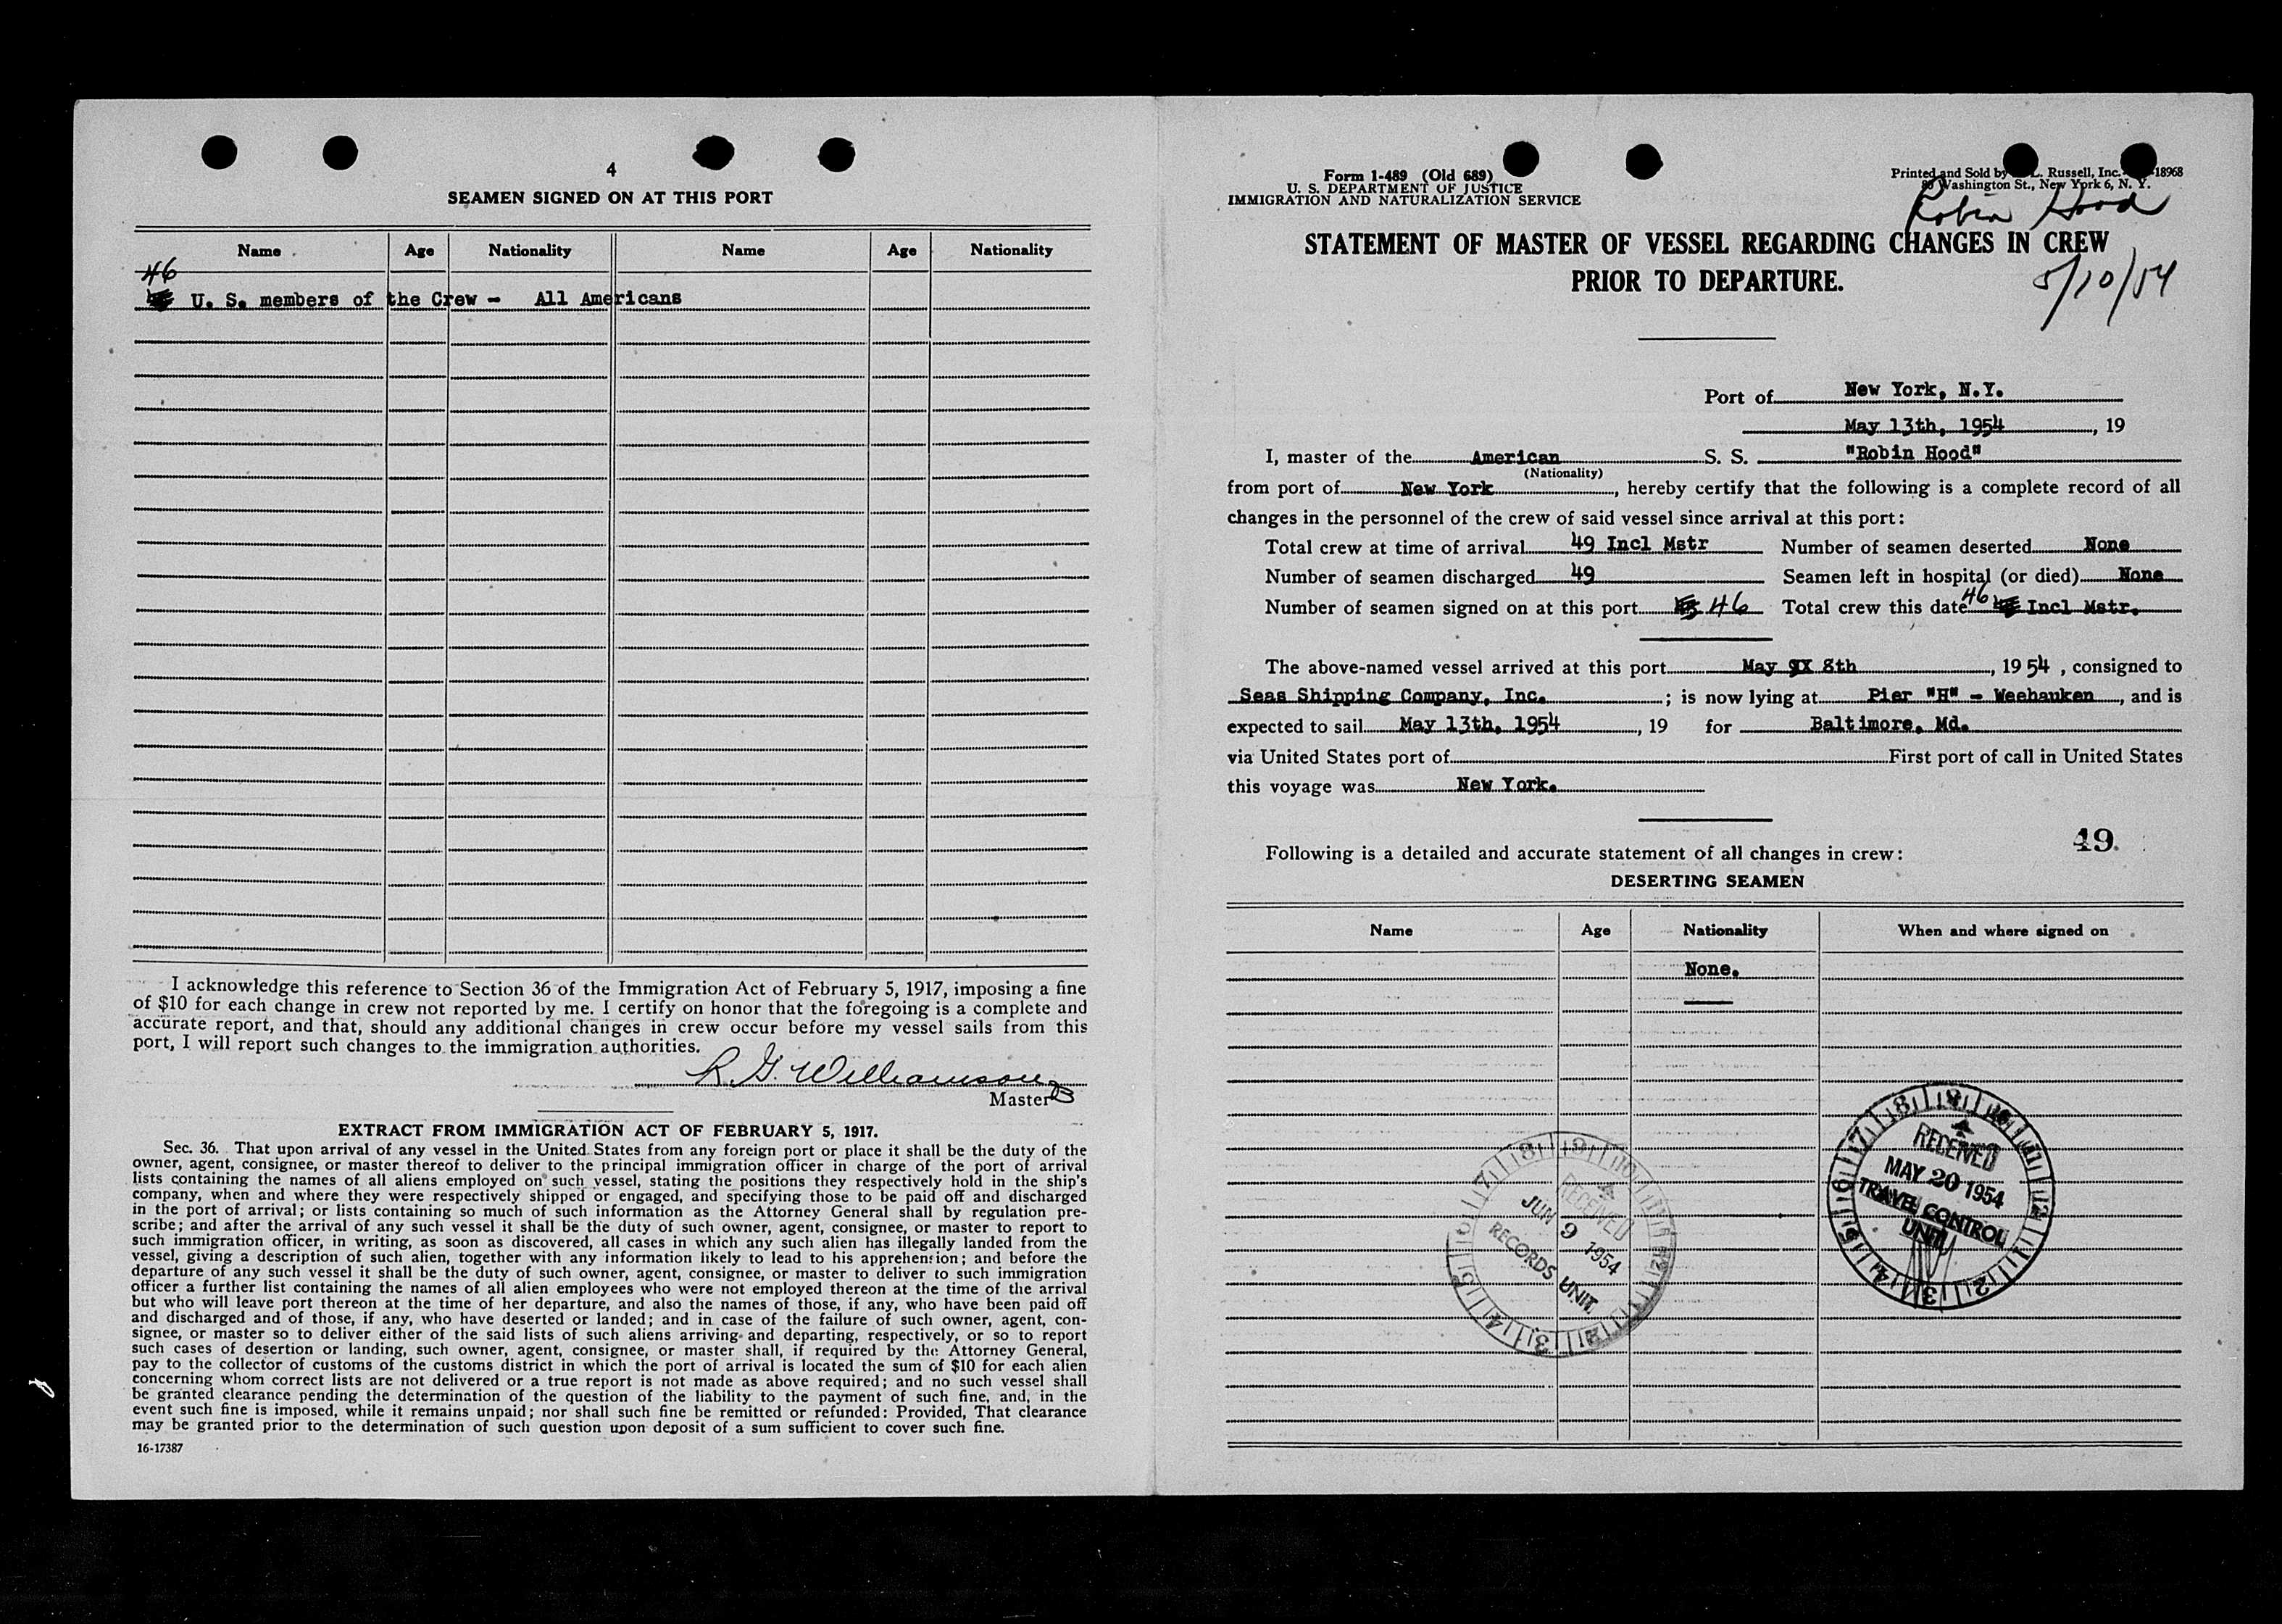 4
SEAMEN SIGNED ON AT THIS PORT
Name Age Nationality Name Age Nationality
46
U. S. members of the Crew - All Americans
I acknowledge this reference to Section 36 of the Immigration Act of February 5, 1917, imposing a fine
of $10 for each change in crew not reported by me. I certify on honor that the foregoing is a complete and
accurate report, and that, should any additional changes in crew occur before my vessel sails from this
port, I will report such changes to the immigration authorities.
R. G. Williamson
Master
EXTRACT FROM IMMIGRATION ACT OF FEBRUARY 5, 1917.
Sec. 36. That upon arrival of any vessel in the United States from any foreign port or place it shall be the duty of the
owner, agent, consignee, or master thereof to deliver to the principal immigration officer in charge of the port of arrival
lists containing the names of all aliens employed on such vessel, stating the positions they respectively hold in the ship's
company, when and where they were respectively shipped or engaged, and specifying those to be paid off and discharged
in the port of arrival; or lists containing so much of such information as the Attorney General shall by regulation pre-
scribe; and after the arrival of any such vessel it shall be the duty of such owner, agent, consignee, or master to report to
such immigration officer, in writing, as soon as discovered, all cases in which any such alien has illegally landed from the
vessel, giving a description of such alien, together with any information likely to lead to his apprehension; and before the
departure of any such vessel it shall be the duty of such owner, agent, consignee, or master to deliver to such immigration
officer a further list containing the names of all alien employees who were not employed thereon at the time of the arrival
but who will leave port thereon at the time of her departure, and also the names of those, if any, who have been paid off
and discharged and of those, if any, who have deserted or landed; and in case of the failure of such owner, agent, con-
signee, or master so to deliver either of the said lists of such aliens arriving and departing, respectively, or so to report
such cases of desertion or landing, such owner, agent, consignee, or master shall, if required by the Attorney General,
pay to the collector of customs of the customs district in which the port of arrival is located the sum of $10 for each alien
concerning whom correct lists are not delivered or a true report is not made as above required; and no such vessel shall
be granted clearance pending the determination of the question of the liability to the payment of such fine, and, in the
event such fine is imposed, while it remains unpaid; nor shall such fine be remitted or refunded: Provided, That clearance
may be granted prior to the determination of such question upon deposit of a sum sufficient to cover such fine.
16-17387
Form I-489 (Old 689)
U. S. DEPARTMENT OF JUSTICE
IMMIGRATION AND NATURALIZATION SERVICE
Printed and Sold by L. Russell, Inc. 18968
Washington St., New York 6, N. Y.
Robin Hood
STATEMENT OF MASTER OF VESSEL REGARDING CHANGES IN CREW
PRIOR TO DEPARTURE.
5/10/54
Port of New York, N.Y.
May 13th, 1954, 19
I, master of the American S. S. "Robin Hood"
(Nationality)
from port of New York, hereby certify that the following is a complete record of all
changes in the personnel of the crew of said vessel since arrival at this port:
Total crew at time of arrival 49 Incl Mstr Number of seamen deserted None
Number of seamen discharged 49 Seamen left in hospital (or died) None
Number of seamen signed on at this port 46 Total crew this date 46 Incl Mstr.
The above-named vessel arrived at this port May 8th, 1954, consigned to
Seas Shipping Company, Inc.; is now lying at Pier "H" - Weehauken, and is
expected to sail May 13th, 1954, 19 for Baltimore, Md.
via United States port of First port of call in United States
this voyage was New York.
49.
Following is a detailed and accurate statement of all changes in crew:
DESERTING SEAMEN
Name Age Nationality When and where signed on
None.
RECEIVED
JUN 9 1954
RECORDS UNIT
RECEIVED
MAY 20 1954
TRAVEL CONTROL
UNIT